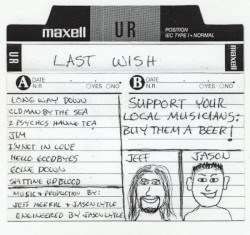 maxell UR maxell
POSITION
IEC TYPE I • NORMAL
UR
LAST WISH
A DATE
N.R. YES NO
B DATE
N.R. YES NO
LONG WAY DOWN
OLD MAN BY THE SEA
2 PSYCHOS HAVING TEA
JIM
I'M NOT IN LOVE
HELLO GOODBYES
COME DOWN
SPITTING UP BLOOD
MUSIC & PRODUCTION BY:
JEFF MERRAL & JASON LYTLE
ENGINEERED BY JASON LYTLE
SUPPORT YOUR
LOCAL MUSICIANS:
BUY THEM A BEER!
JEFF
JASON